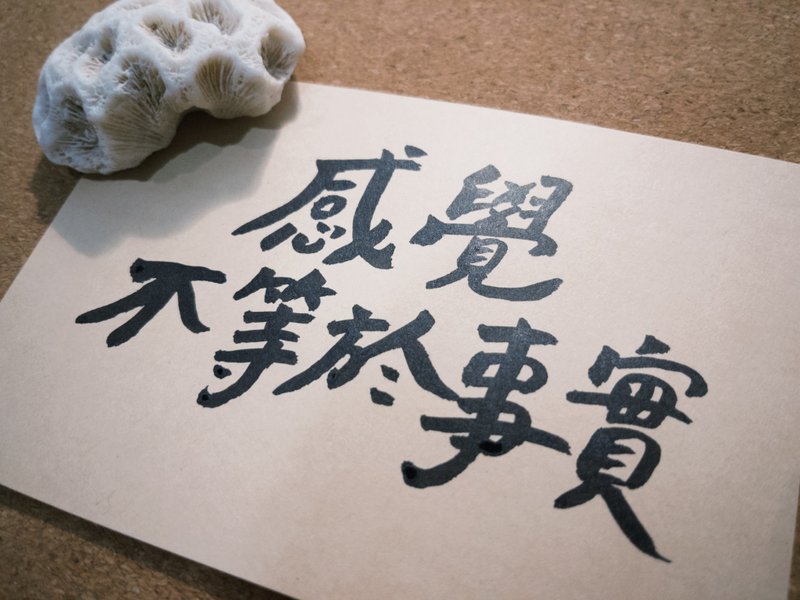 感覺
不等於事實